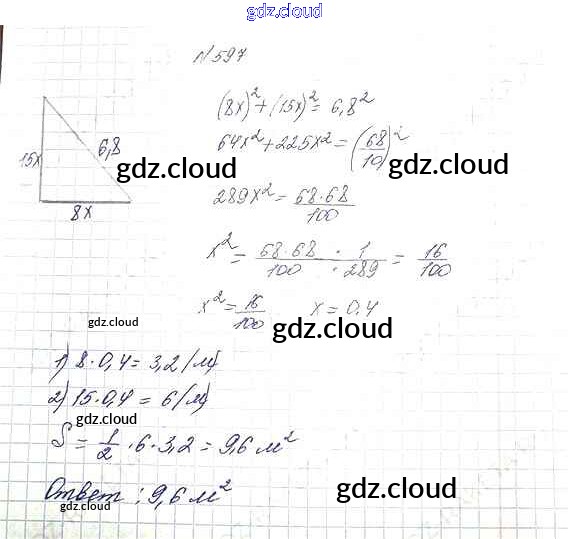 gdz.cloud
N 597
(8x)² + (15x)² = 6,8²
15x
6,8
8x
64x² + 225x² = (68/10)²
gdz.cloud
gdz.cloud
289x² = 68·68/100
x² = 68·68/100 · 1/289 = 16/100
x² = 16/100 x = 0,4
gdz.cloud
gdz.cloud
1) 8·0,4 = 3,2 (м)
2) 15·0,4 = 6 (м)
gdz.cloud
S = 1/2 · 6 · 3,2 = 9,6 м²
Ответ: 9,6 м²
gdz.cloud
gdz.cloud